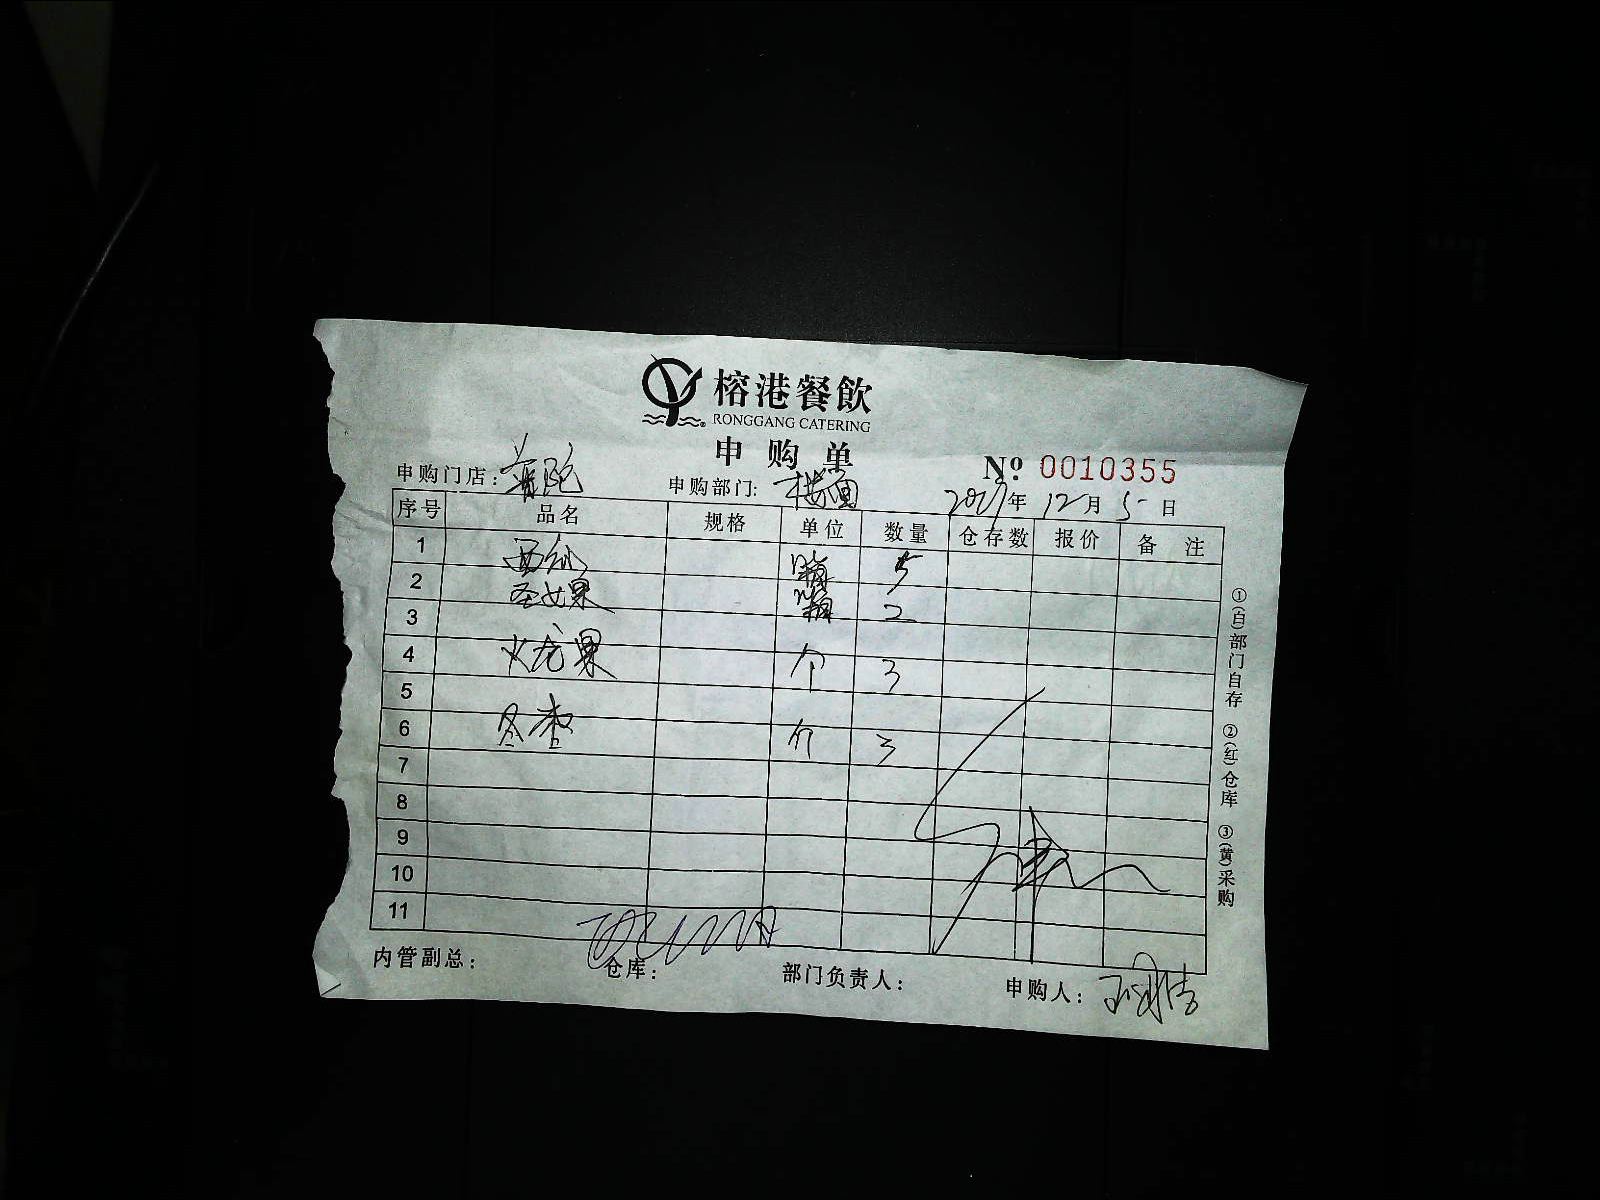 榕港餐飲
RONGGANG CATERING
申购单
№ 0010355
申购门店: 普陀 申购部门: 楼面 2021年 12月 5日
序号 品名 规格 单位 数量 仓存数 报价 备注
1 西瓜 5
2 圣女果 2
3
4 火龙果 个 3
5
6 冬枣 个 3
7
8
9
10
11
内管副总: 仓库: 部门负责人: 申购人:
①(白)部门自存 ②(红)仓库 ③(黄)采购